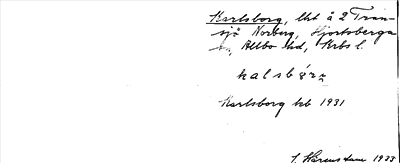 Karlsborg, lht å 2 Tran-
sjö Norberg, Hjortsberga
sn, Allbo hd, Krbs l.
kalsbórn
Karlsborg kb 1931
J. Harenstam 1933